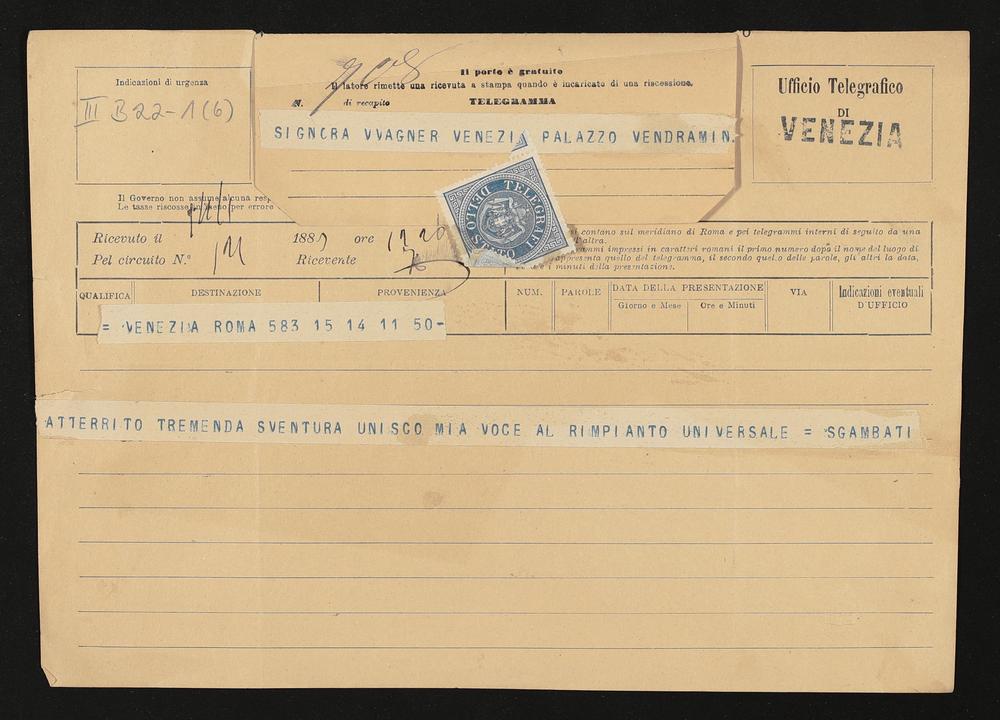 Indicazioni di urgenza
III B 22-1 (6)
Il porto è gratuito
Il latore rimette una ricevuta a stampa quando è incaricato di una riscossione.
N. di recapito TELEGRAMMA
SIGNORA VVAGNER VENEZIA PALAZZO VENDRAMIN.
Ufficio Telegrafico
DI
VENEZIA
Il Governo non assume alcuna resp
Le tasse riscosse in meno per errore
TELEGRAFI
Ricevuto il 188 ore
Pel circuito N.° Ricevente
si contano sul meridiano di Roma e pei telegrammi interni di seguito da una
all'altra.
ammi impressi in caratteri romani il primo numero dopo il nome del luogo di
appresenta quello del telegramma, il secondo quello delle parole, gli altri la data,
e i minuti della presentazione.
QUALIFICA DESTINAZIONE PROVENIENZA NUM. PAROLE DATA DELLA PRESENTAZIONE VIA Indicazioni eventuali
D'UFFICIO
Giorno e Mese Ore e Minuti
= VENEZIA ROMA 583 15 14 11 50-
ATTERRITO TREMENDA SVENTURA UNISCO MIA VOCE AL RIMPIANTO UNIVERSALE = SGAMBATI